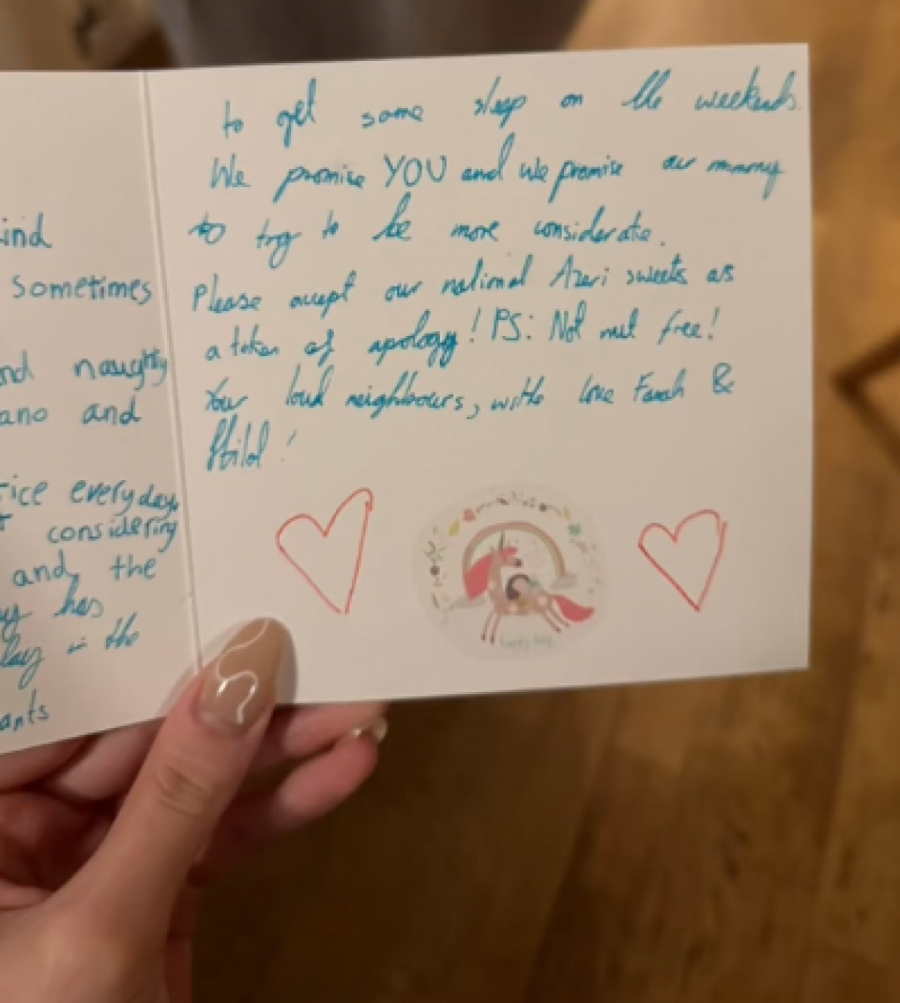 ind
sometimes
nd naughty
ano and
rice everyday
r considering
and, the
y has
lay in the
ants
to get some sleep on the weekends.
We promise YOU and we promise our mummy
to try to be more considerate.
Please accept our national Azeri sweets as
a token of apology! PS: Not nut free!
Your loud neighbours, with love Farah &
happy day